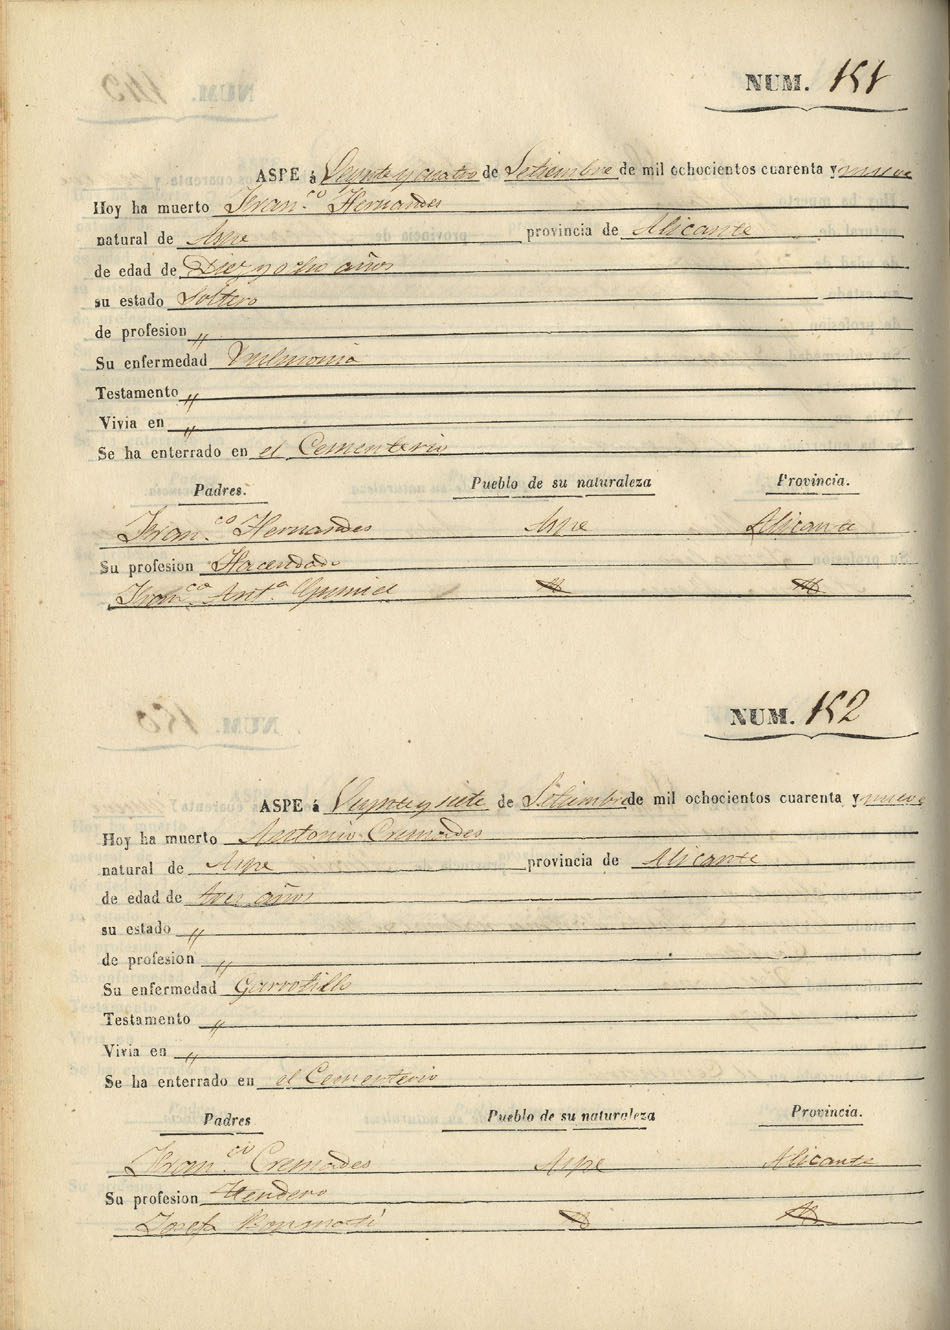 NUM. 151
ASPE á Veynte y cuatro de Setiembre de mil ochocientos cuarenta y nueve
Hoy ha muerto Fran.co Hernandes
natural de Aspe provincia de Alicante
de edad de Diez y ocho años
su estado Soltero
de profesion "
Su enfermedad Pulmonia
Testamento "
Vivia en "
Se ha enterrado en el Cementerio
Padres. Pueblo de su naturaleza Provincia.
Fran.co Hernandes Aspe Alicante
Su profesion Hacendado
Fran.ca Ant.a
NUM. 152
ASPE á Veynte y siete de Setiembre de mil ochocientos cuarenta y nueve
Hoy ha muerto Antonio Cremades
natural de Aspe provincia de Alicante
de edad de tres años
su estado "
de profesion "
Su enfermedad Garrotillo
Testamento "
Vivia en "
Se ha enterrado en el Cementerio
Padres Pueblo de su naturaleza Provincia.
Fran.co Cremades Aspe Alicante
Su profesion tendero
Josefa